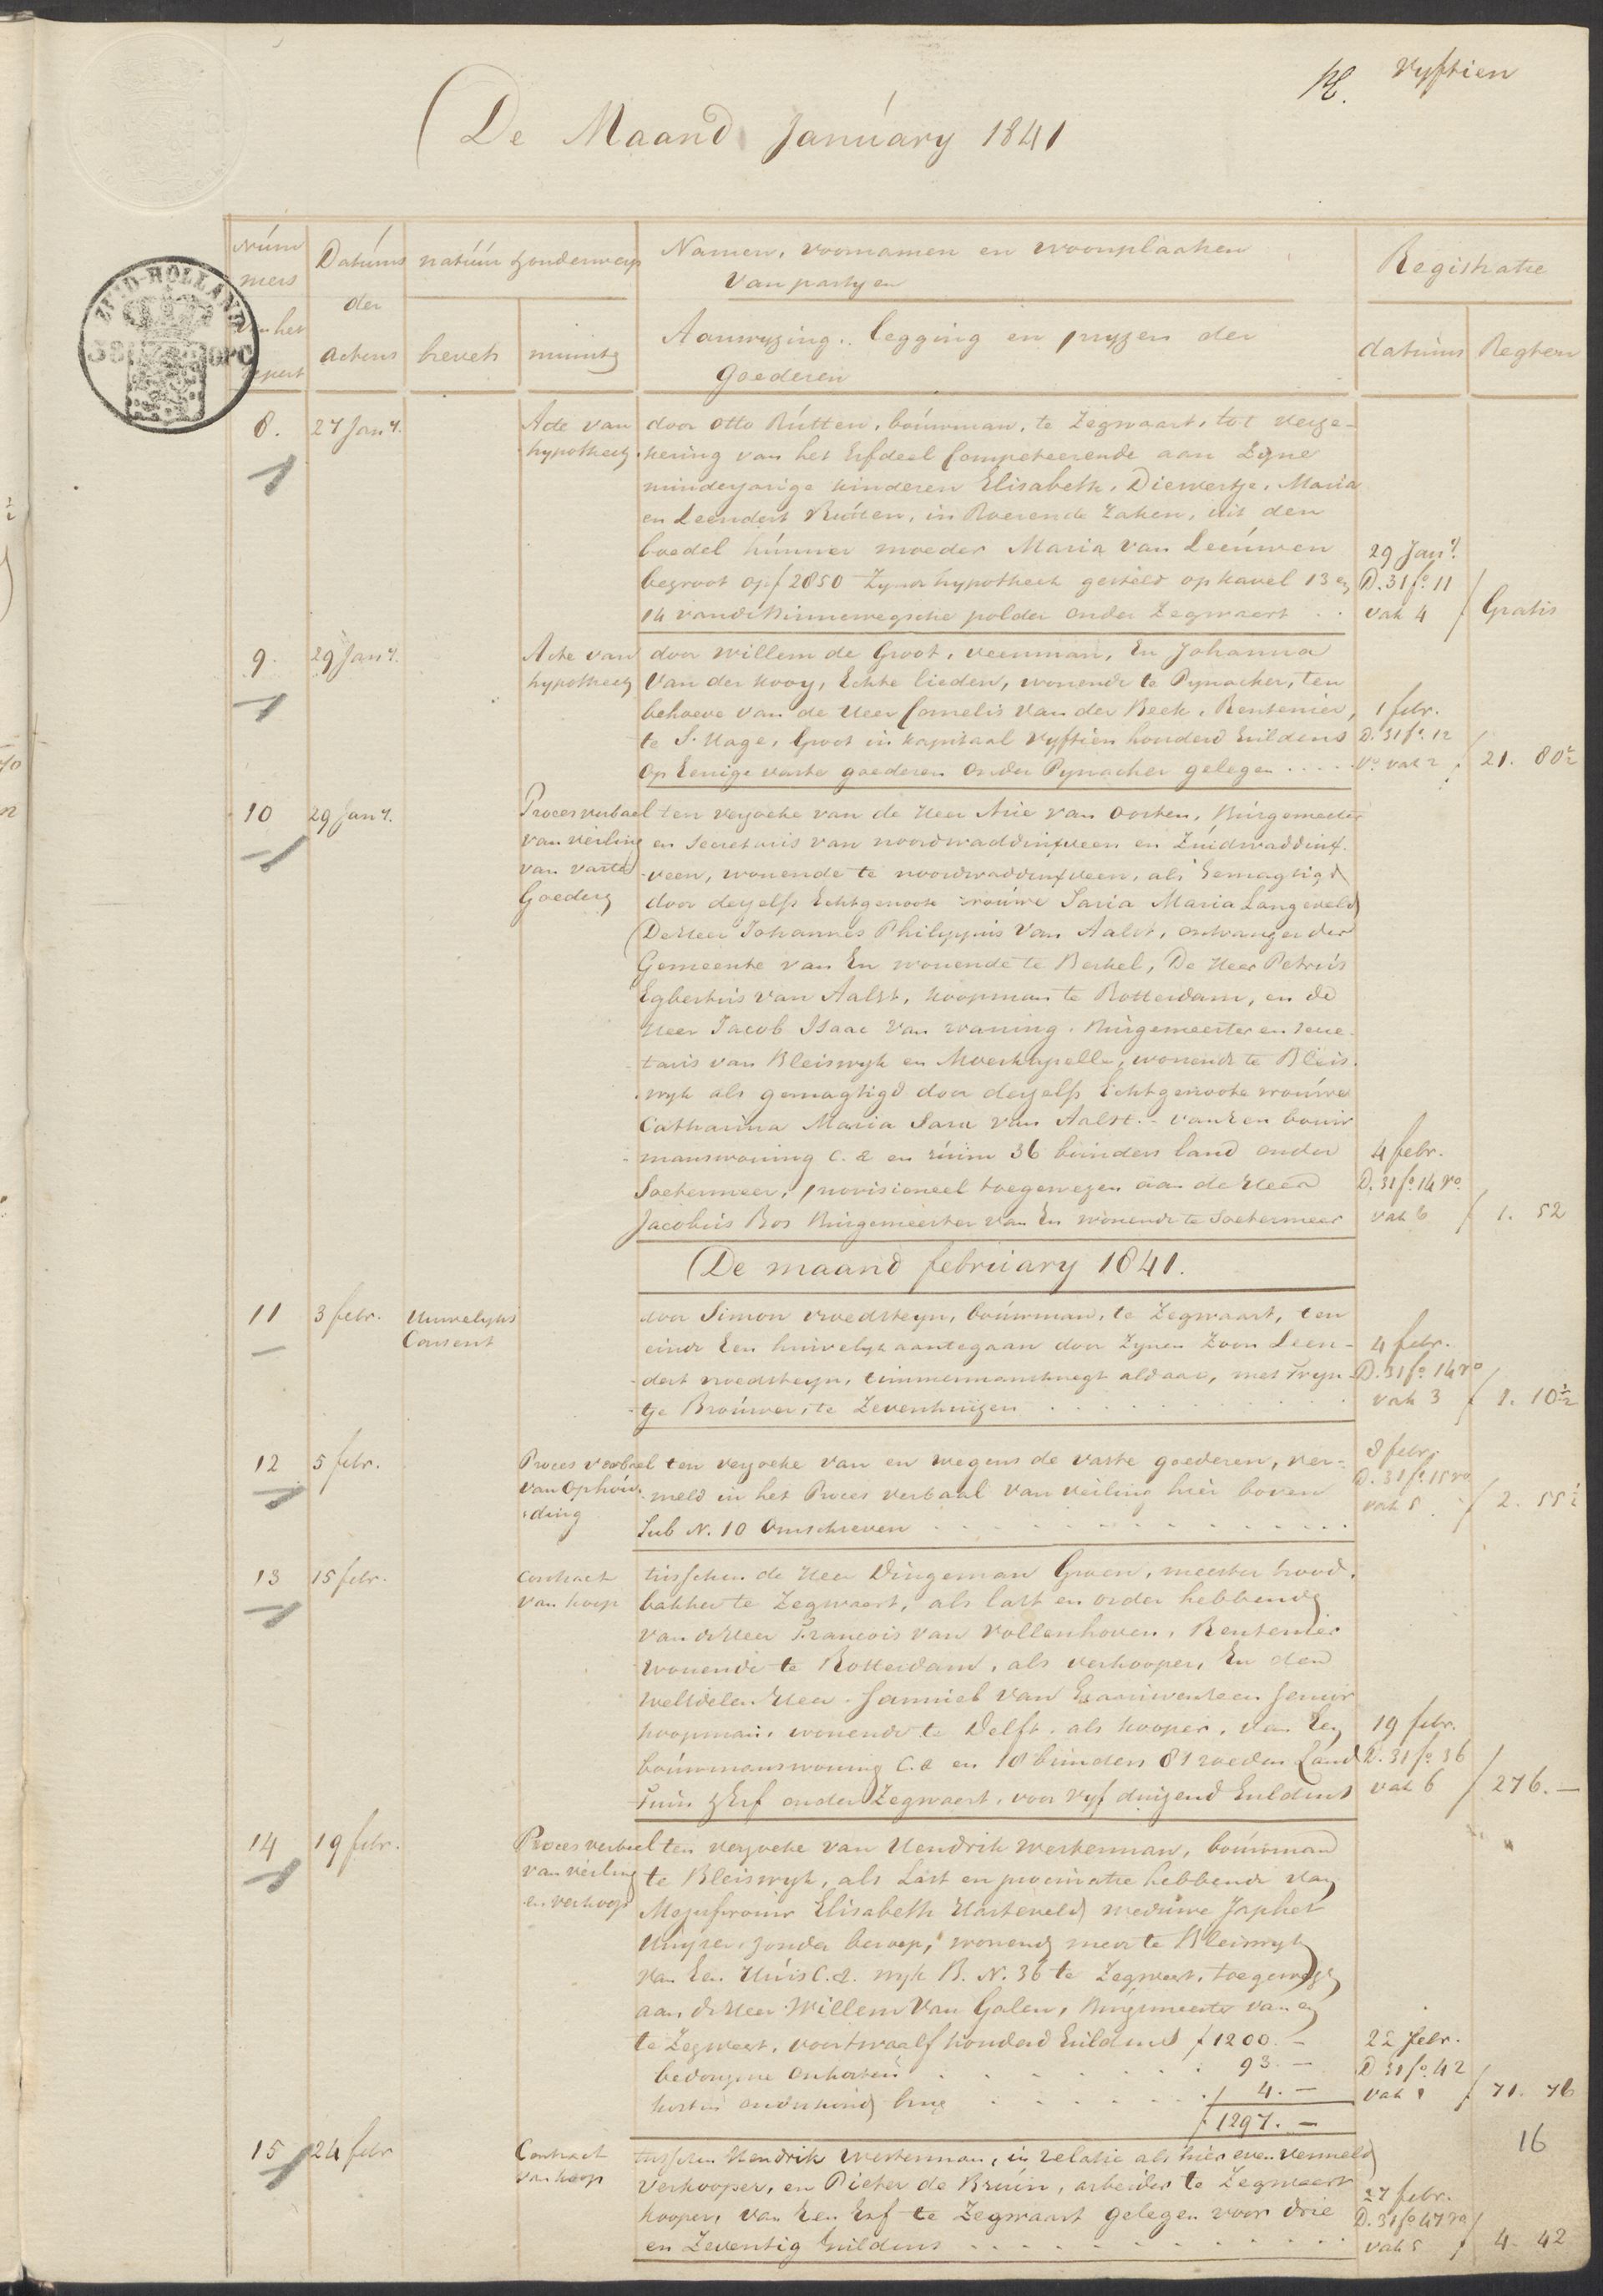 Vyftien
De Maand January 1841
ZUID-HOLLAND
Num
mers
van het
Datums
der
actens
natuur
brevets
minuts
Namen, voornamen en woonplaatsen
van partyen
Aanwyzing, legging en pryzen der
Goederen
Registratie
datums
Regten
8.
27 Jany.
Acte van
hypotheek
door Otto Rutten, bouwman, te Zegwaart, tot verze-
kering van het Erfdeel Competeerende aan Zyne
minderjarige kinderen Elisabeth, Diewertje, Maria
en Leendert Rutten, in Roerende Zaken, uit den
boedel hunner moeder Maria van Leeuwen
begroot op f 2850 Zynde hypotheek gesteld op kavel 13 en
14 van de Binnewegsche polder onder Zegwaert
29 Jany.
D. 31 fo. 11
vak 4
Gratis
9.
29 Jany.
Acte van
hypotheek
door Willem de Groot, veenman, En Johanna
van der Kooy, Echte lieden, wonende te Pynacker, ten
behoeve van de Heer Cornelis van der Beek, Rentenier,
te S. Hage, Groot in kapitaal Vyftien honderd Guldens
op Eenige vaste goederen onder Pynacker gelegen ....
1 febr.
D. 31 fo. 12
vo. vak 2
21. 80½
10
29 Jany.
Proces verbaal
van veiling
van vaste
Goederen
ten verzoeke van de Heer Arie van Oosten, Burgemeester
en Secretaris van noordwaddinxveen en Zuidwaddinx-
veen, wonende te noordwaddinxveen, als Gemagtigd
door deszelfs Echtgenoote vrouwe Saria Maria Langeveld
De Heer Johannes Philippus van Aalst, ontvanger der
Gemeente van En wonende te Berkel, De Heer Petrus
Egbertus van Aalst, koopman te Rotterdam, en de
Heer Jacob Isaac van Waning, Burgemeester en Secre-
taris van Bleiswyk en Moerkapelle, wonende te Bleis-
wyk als gemagtigd door deszelfs Echtgenoote vrouwe
Catharina Maria Sara van Aalst. - van Een bouw
manswoning C. a en ruim 36 bunders land onder
Soetermeer, provisioneel toegewezen aan de Heer
Jacobus Bos Burgemeester van En wonende te Soetermeer
4 febr.
D. 31 fo. 14 vo.
vak 6
1. 52
De maand february 1841.
11
3 febr.
Huwelyks
Consent
door Simon vroedsteyn, bouwman, te Zegwaart, ten
einde Een huwelyk aantegaan door Zynen Zoon Leen-
dert vroedsteyn, timmermansknegt aldaar, met Tryn-
tje Brouwer, te Zevenhuizen
4 febr.
D. 31 fo. 14 vo
vak 3
1. 10½
12
5 febr.
Proces verbaal
van Ophou
ding
ten verzoeke van en wegens de vaste goederen, ver-
meld in het Proces verbaal van veiling hier boven
Sub N. 10 Omschreven
8 febr.
D. 31 fo. 15 vo
vak 5
2. 55½
13
15 febr.
Contract
van koop
tusschen de Heer Dingeman Groen, meester brood-
bakker te Zegwaart, als last en order hebbende
van de Heer Francois van Vollenhoven, Rentenier
wonende te Rotterdam, als verkooper, En den
Weledelen Heer Samuel van Senior
koopman, wonende te Delft, als kooper, van Een
bouwmanswoning C. a en 18 bunders 81 roeden Land
Tuin & Erf onder Zegwaert, voor Vyf duizend Guldens
19 febr.
D. 31 fo. 36
vak 6
276. —
14
19 febr.
Proces verbaal
van veiling
en verkoop
ten verzoeke van Hendrik Westerman, bouwman
te Bleiswyk, als Last en procuratie hebbende van
Mejufvrouw Elisabeth Hasteveld weduwe Japhet
zonder beroep, wonende mede te Bleiswyk
van Een Huis C. a. wyk B. N. 36 te Zegwaart, toegewezen
aan de Heer Willem van Galen, Burgemeester van en
te Zegwaart, voor twaalf honderd Guldens f 1200. —
bedongene onkosten 93. —
4. —
f 1297. —
22 febr.
D 31 fo. 42
vak
71. 76
15
24 febr
Contract
van koop
tusschen Hendrik Westerman, in relatie als hier even vermeld
Verkooper, en Pieter de Bruin, arbeider te Zegwaart
kooper, van Een Erf te Zegwaart gelegen voor drie
en Zeventig Guldens
27 febr.
D. 31 fo 47 vo
vak 5
4. 42
16